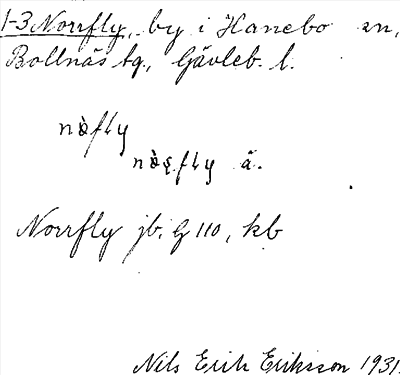 1-3 Norrfly, by i Hanebo sn,
Bollnäs tg., Gävleb. l.
nòfly
fly ä.
Norrfly jb. G 110, kb
Nils Erik Eriksson 1931.